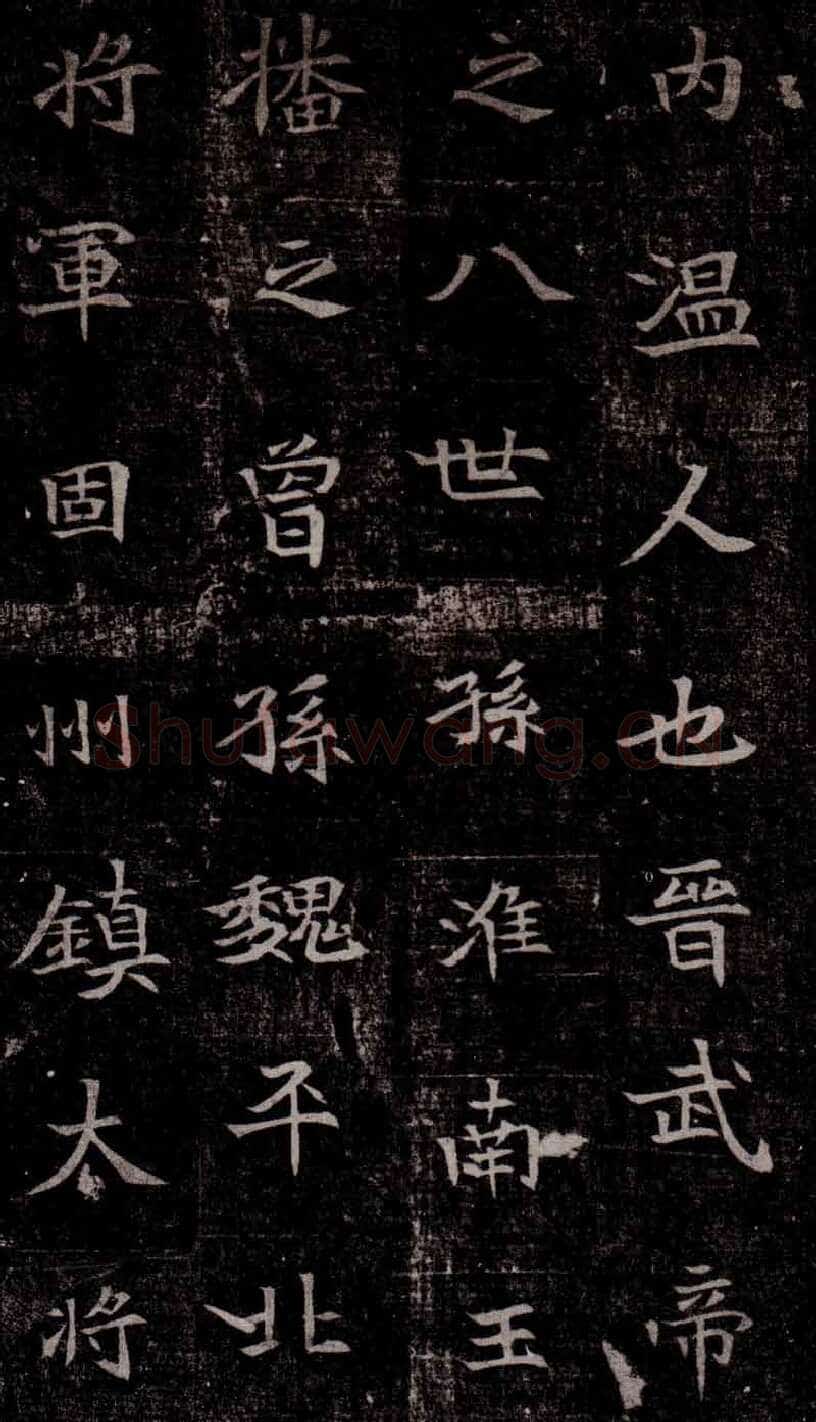 内温人也晉武帝
之八世孫淮南王
播之曾孫魏平北
将軍固州鎮大将
Shufawang.cn